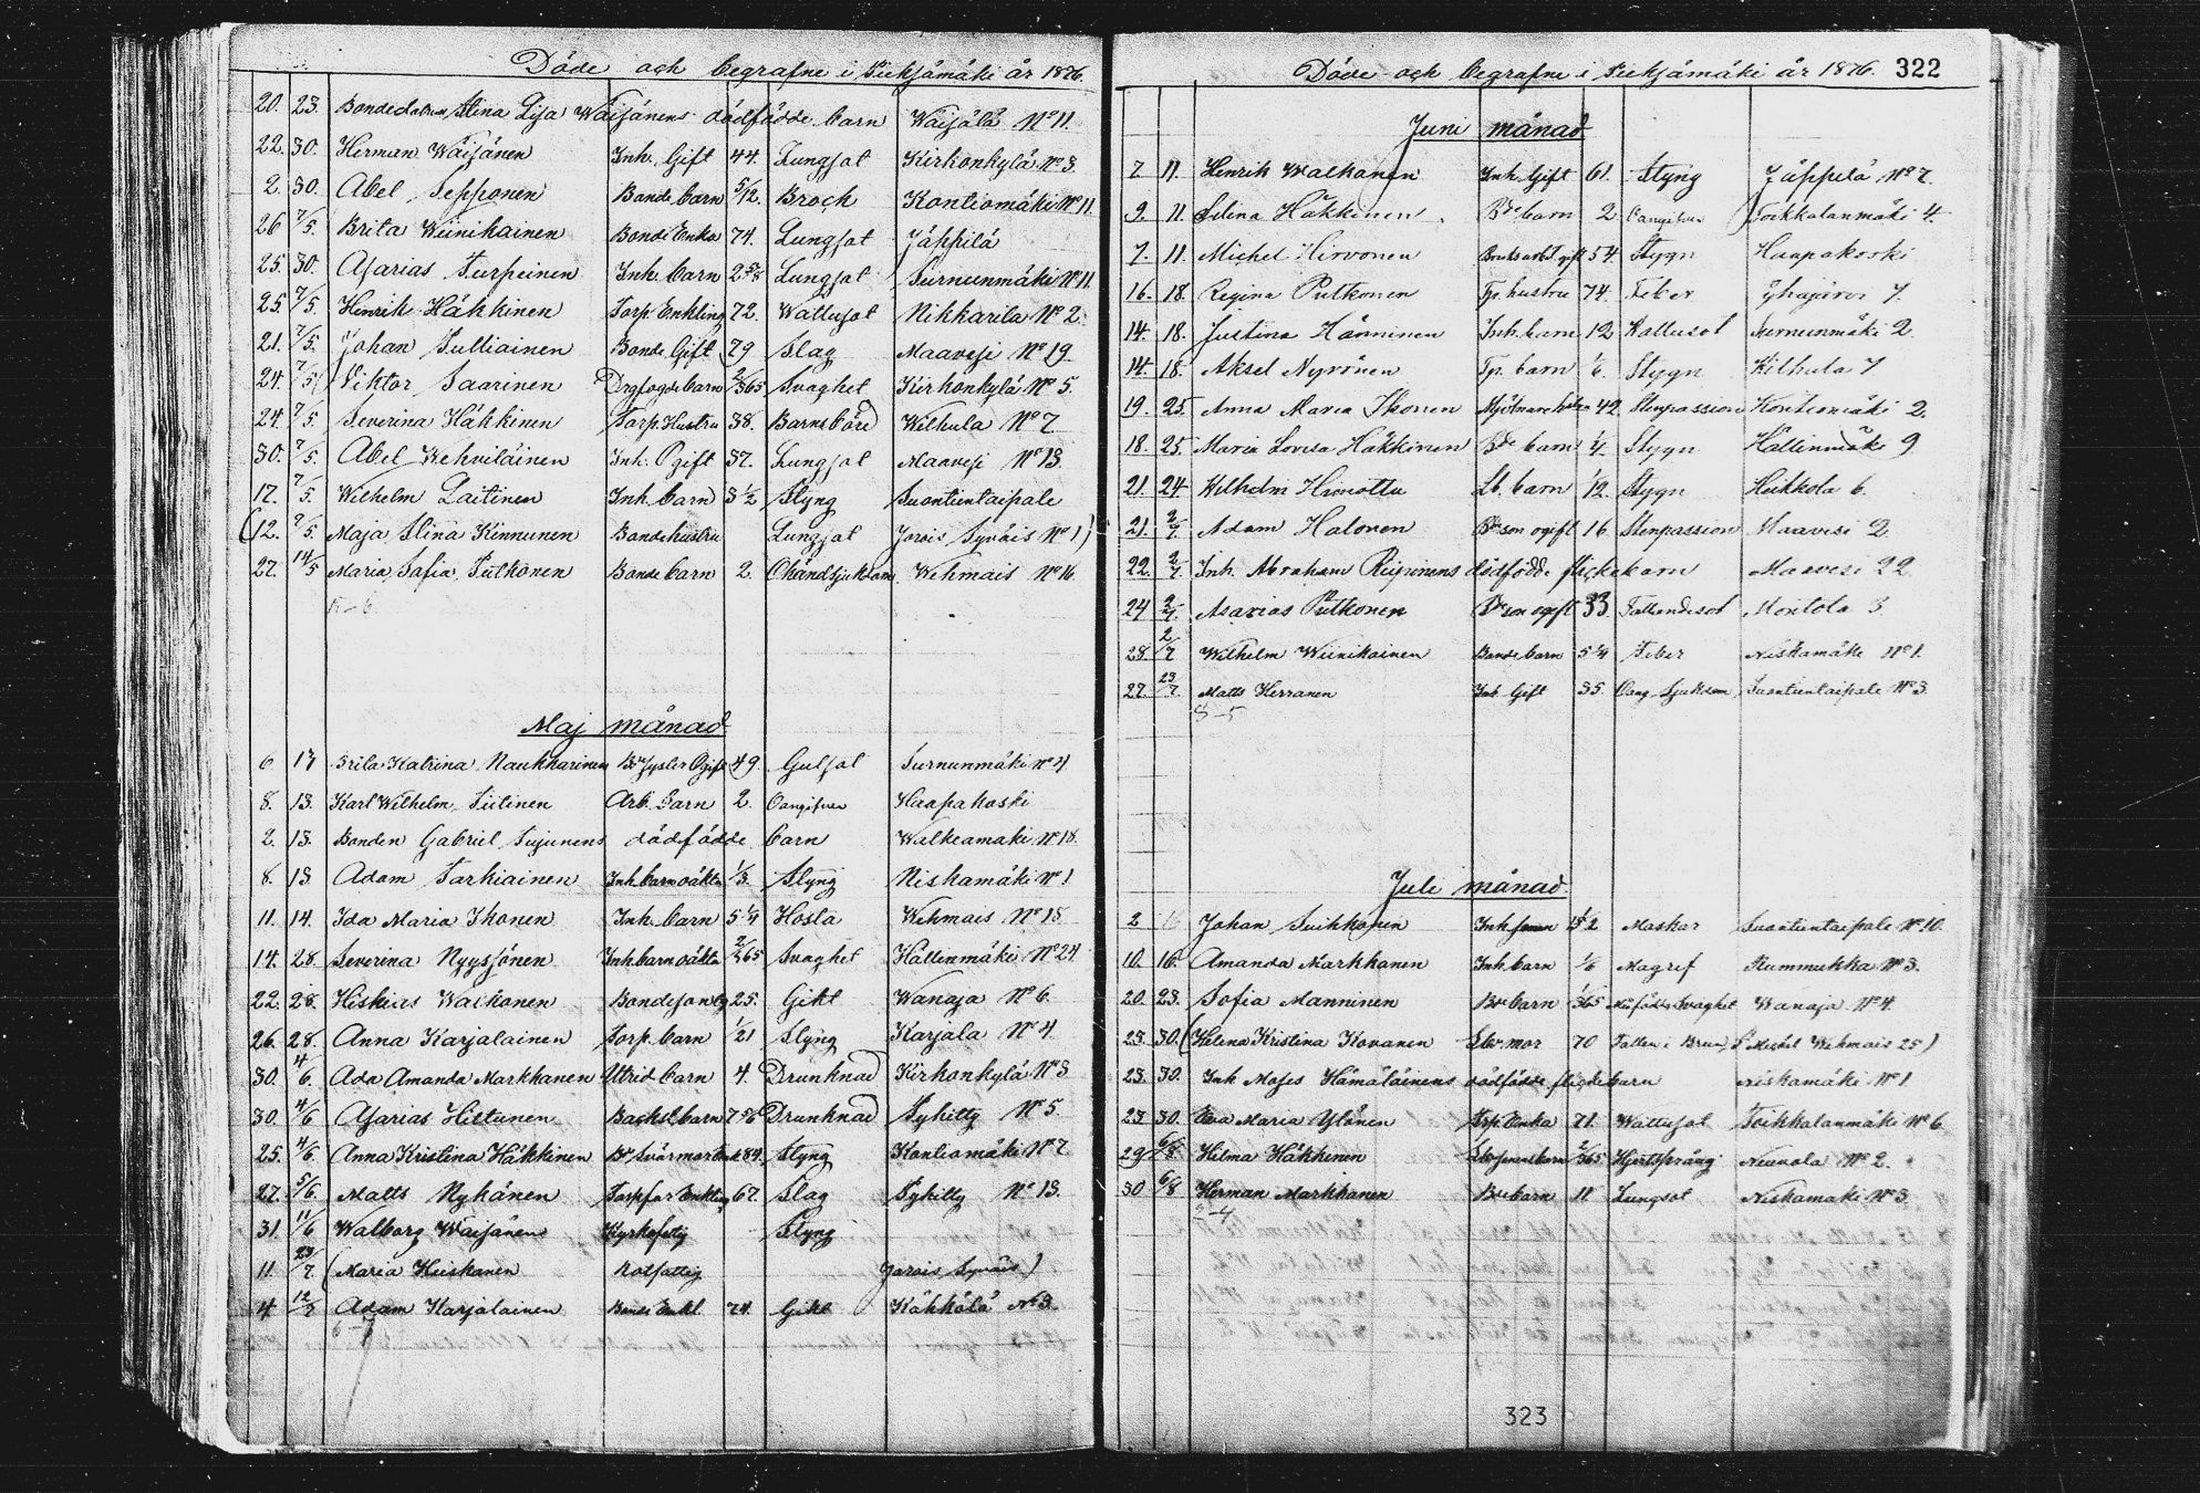 Döde och begrafne i Pieksämäki år 1876.
20. 23. Bondedottren Stina Lisa Wäisänens dödfödde barn Wäisälä No 11.
22. 30. Herman Wäisänen Inh. Gift 44. Lungsot Kirkonkylä No 3.
2. 30. Abel Sepponen Bonde barn 5/12. Bröck Kontiomäki No 11
26 7/5. Brita Wiinikainen Bonde Enka 74. Lungsot Jäppilä
25. 30. Asarias Turpeinen Inh. barn 2 Lungsot Surnunmäki No 11.
25. 7/5. Henrik Häkkinen Torp. Enkling 72. Wattusot Nikkarila No 2.
21. 7/5. Johan Pulliainen Bonde Gift 79 Slag Maavesi No 19.
24. 7/5 Viktor Saarinen barn 2/365 Svaghet Kirkonkylä No 5.
24. 7/5. Severina Häkkinen Torp. Hustru 38. Barnsbörd Wilhula No 7
30. 7/5. Abel Wehviläinen Inh. Ogift 37. Lungsot Maavesi No 13.
17. 7/5. Wilhelm Laitinen Inh. barn 3 1/2 Styng Suontientaipale
(12. 7/5. Maja Stina Kinnunen Bondehustru Lungsot Jorois Syväis No 1)
27. 14/5 Maria Sofia Putkonen Bonde barn 2. Okänd sjukdom Wehmais No 16.
Maj månad
6 13 Brita Katrina Naukkarinen Ogift 49. Gulsot Surnunmäki No 4
8. 13. Karl Wilhelm Siitinen Arb. Barn 2. Oangifven Haapakoski
2. 13. Bonden Gabriel Sujunens dödfödde barn Walkeamäki No 18.
8. 13 Adam Tarkiainen Inh. barn oäkta 1/3. Styng Niskamäki No 1
11. 14. Ida Maria Ikonen Inh. barn 5 1/4 Hosta Wehmais No 18
14. 28. Severina Nyyssönen Inh. barn oäkta 2/365 Svaghet Hällinmäki No 24
22. 28. Hiskias Walkonen Bondeson 25. Gikt Wanaja No 6.
26. 28. Anna Karjalainen Torp. barn 1/21 Styng Karjala No 4
30. 4/6. Ada Amanda Markkanen barn 4. Drunknad Kirkonkylä No 3
30. 4/6 Asarias Hiltunen barn 7 5/6 Drunknad Pyhitty No 5
25. 4/6. Anna Kristina Häkkinen 84. Styng Kontiomäki No 7
27. 5/6. Matts Nyhänen Enkling 67. Slag Pyhitty No 13.
31. 11/6 Walborg Wäisänen Styng
11. 23/7. (Maria Heiskanen Rotfattig Jorois Syväis)
4 12/7 Adam Karjalainen Bonde Enkl. 74. Gikt Kähkölä No 3.
Döde och begrafne i Pieksämäki år 1876. 322
Juni månad
7 11. Henrik Walkonen Inh. Gift 61. Styng Jäppilä No 7.
9. 11. Selina Häkkinen Bde barn 2 Oangifven Toikkalanmäki 4.
7. 11. Michel Hirvonen gift 54 Stygn Haapakoski
16. 18. Regina Putkonen Tp. hustru 74 Feber 7.
14. 18. Justina Hänninen Inh. barn 12 Wattusot Surnunmäki 2.
14. 18. Aksel Nyrönen Tp. barn 1/6. Stygn Wilhula 7
19. 25. Anna Maria Ikonen 42 Stenpassion Kontiomäki 2.
18. 25. Maria Lovisa Häkkinen Bde barn 1/4 Stygn Hällinmäki 9
21. 24. Wilhelm Himottu barn 1/12. Stygn Heikkola 6.
21. 2/7. Adam Halonen son ogift 16 Stenpassion Maavesi 2
22. 2/7 Inh. Abraham Reijonens dödfödde flickebarn Maavesi 22
24 2/7. Asarias Putkonen son ogift 33. Fallandesot Montola 3
28. 2/7 Wilhelm Wiinikainen Bonde barn 5 1/4 Feber Niskamäki No 1.
27. 23/7. Matts Herranen Inh. Gift 35. Oang. Sjukdom Suontientaipale No 3
8-5
Juli månad
2 16 Johan Suihkonen Inh. 1/2 Maskar Suontientaipale No 10.
10. 16. Amanda Markkanen Inh. barn 1/6 Magref Rummukka No 3.
20. 23. Sofia Manninen Bde barn 1/365 Svaghet Wanaja No 4.
23. 30. (Helena Kristina Kovanen mor 70 Fallen i Brunn St Michel Wehmais 25)
23. 30. Inh. Moses Hämäläinens dödfödde flickebarn Niskamäki No 1
23 30. Eva Maria Ylönen Torp. Enka 71. Wattusot Toikkalanmäki No 6
29 6/8. Hilma Häkkinen 2/365 Hjertsprång Neuvola No 2.
30 6/8 Herman Markkanen Bde barn 11 Lungsot Niskamäki No 3
323